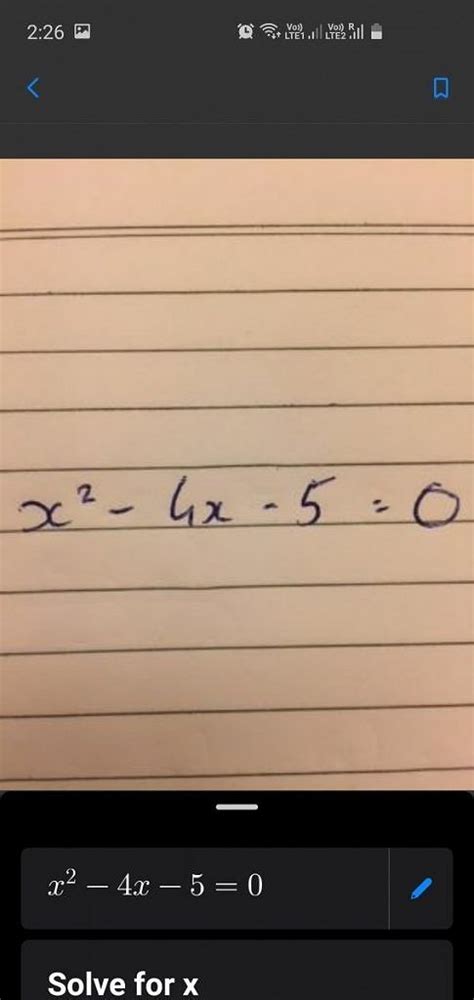 2:26
Vo)) LTE1 Vo)) R LTE2
x² - 4x - 5 = 0
x² − 4x − 5 = 0
Solve for x